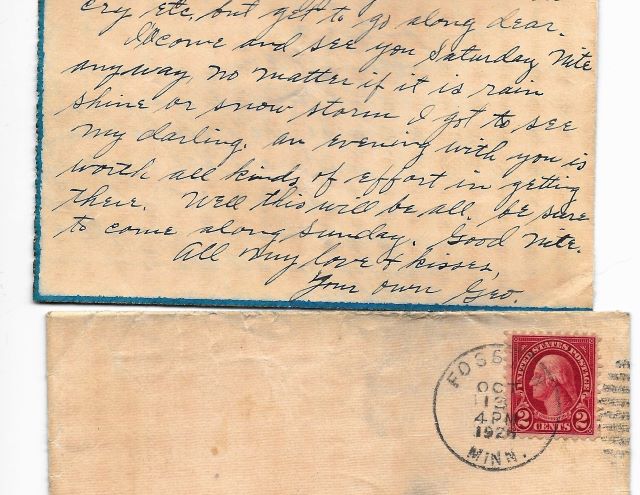 cry etc, but got to go along dear.
I'll come and see you Saturday Nite
anyway, no matter if it is rain
shine or snow storm I got to see
my darling. an evening with you is
worth all kinds of effort in getting
there. Well this will be all, be sure
to come along Sunday. Good Nite.
All my love & kisses,
Your own Geo.
FOSS
OCT
13
4 PM
192
MINN.
UNITED STATES POSTAGE
2 CENTS 2